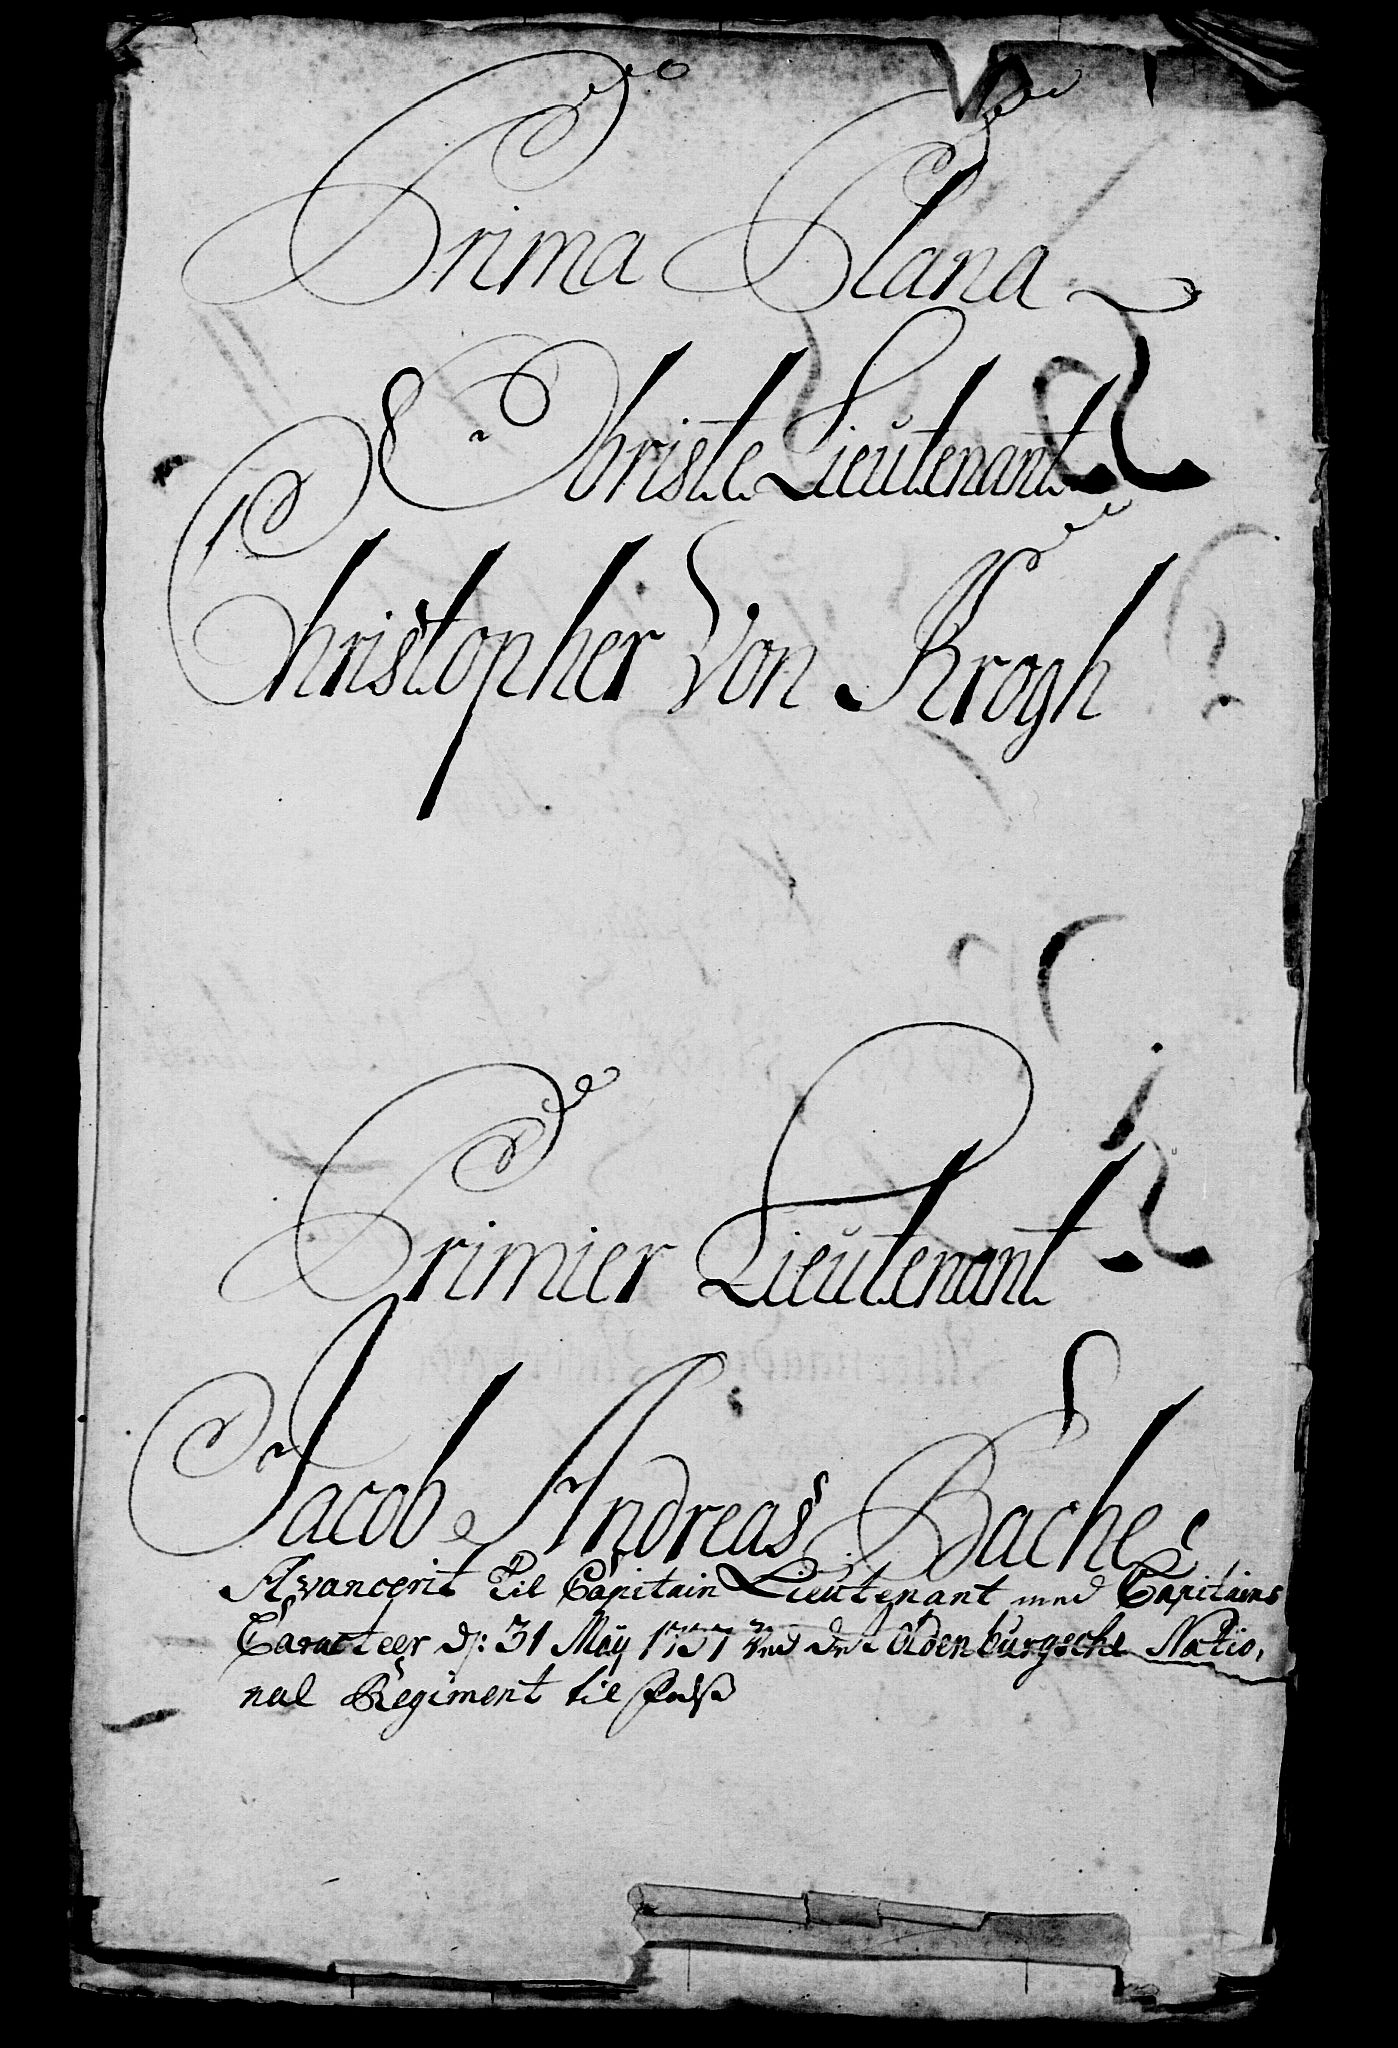 Prima Plana
Obriste Lieutenant
Christopher Von Krogh
Primier Lieutenant
Jacob Andreas Bache
Avancerit til Capitain Lieutenant med Capitains
Caracteer d: 31 Maÿ 1757 ved det Oldenburgsche Natio,
nal Regiment til fods